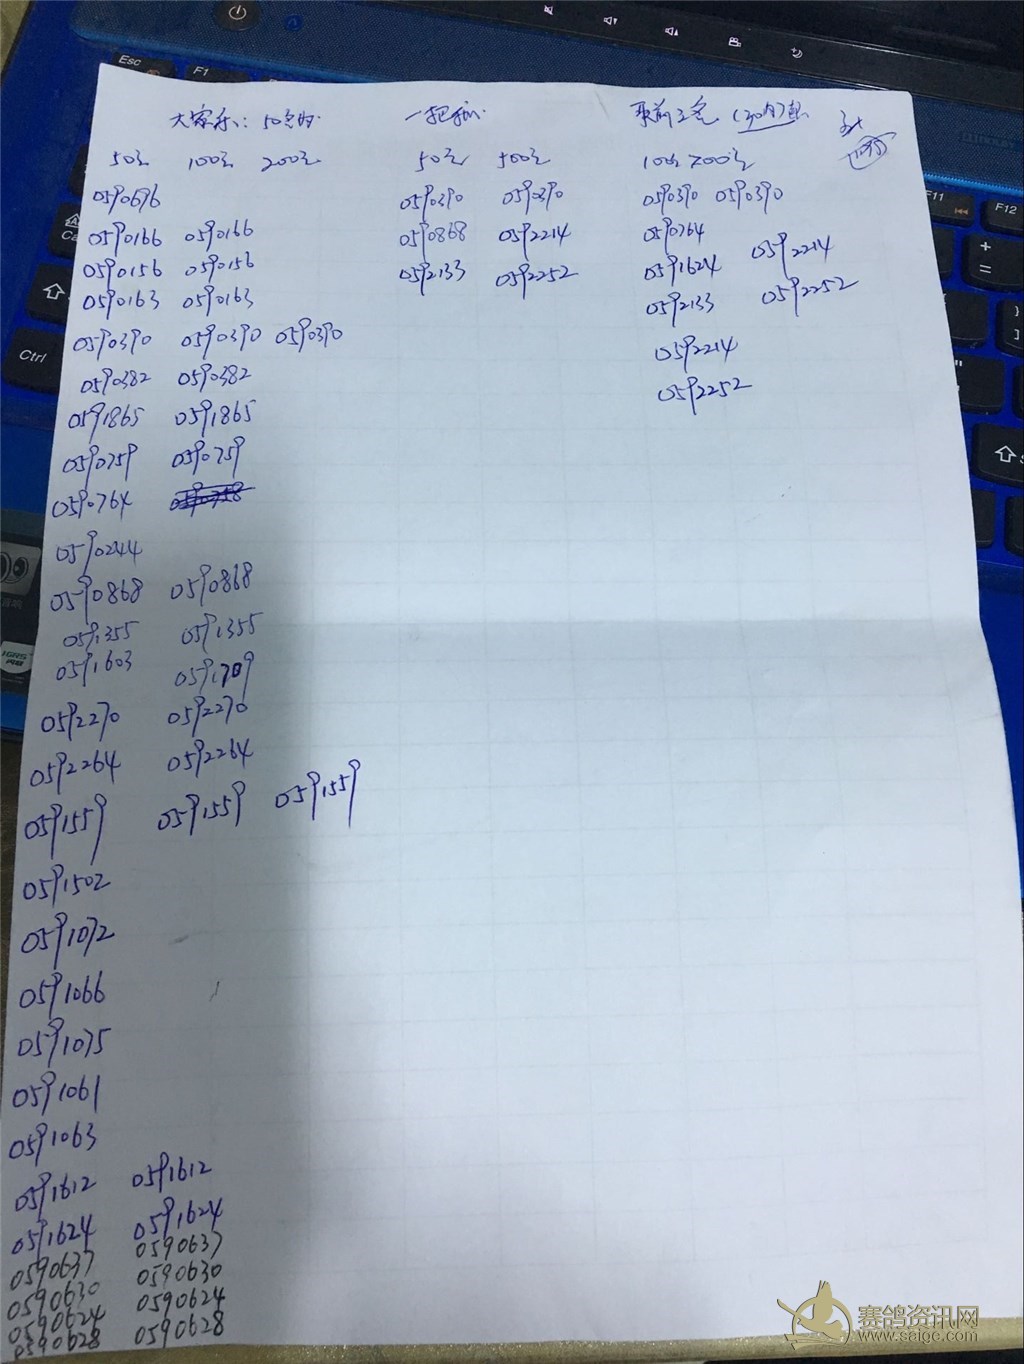 Esc F1 F11 F12
大家乐: 50名时 一把抓
50元 100元 200元 50元 500元 100元 200元
0590696 0590390 0590390 0590390 0590390
0590166 0590166 0590868 0592214 0590764
0590156 0590156 0592133 0592252 0591624 0592214
0590163 0590163 0592133 0592252
0590390 0590390 0590390 0592214
0590382 0590382 0592252
0591865 0591865
0590759 0590759
0590764
0590244
0590868 0590868
0591355 0591355
0591603 0591709
0592270 0592270
0592264 0592264
0591559 0591559 0591559
0591502
0591072
0591066
0591075
0591061
0591063
0591612 0591612
0591624 0591624
0590637 0590637
0590630 0590630
0590624 0590624
0590628 0590628
Ctrl
IGRS
赛鸽资讯网
www.saige.com